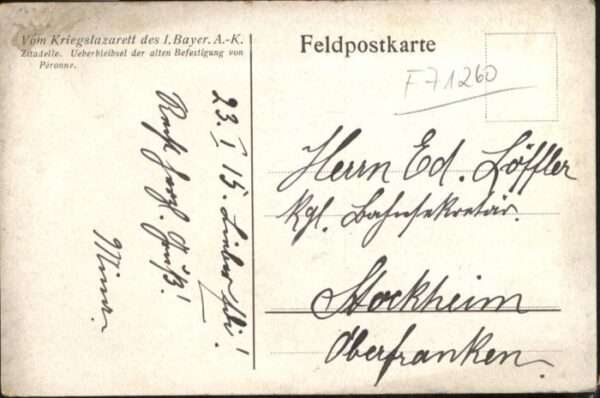 Vom Kriegslazarett des I. Bayer. A.-K.
Zitadelle. Ueberbleibsel der alten Befestigung von
Péronne.
Feldpostkarte
F71260
Herrn Ed. Löffler
Kgl. Bahnsekretär.
Stockheim
Oberfranken.
23. I 15. Lieber !
Recht Gruß!